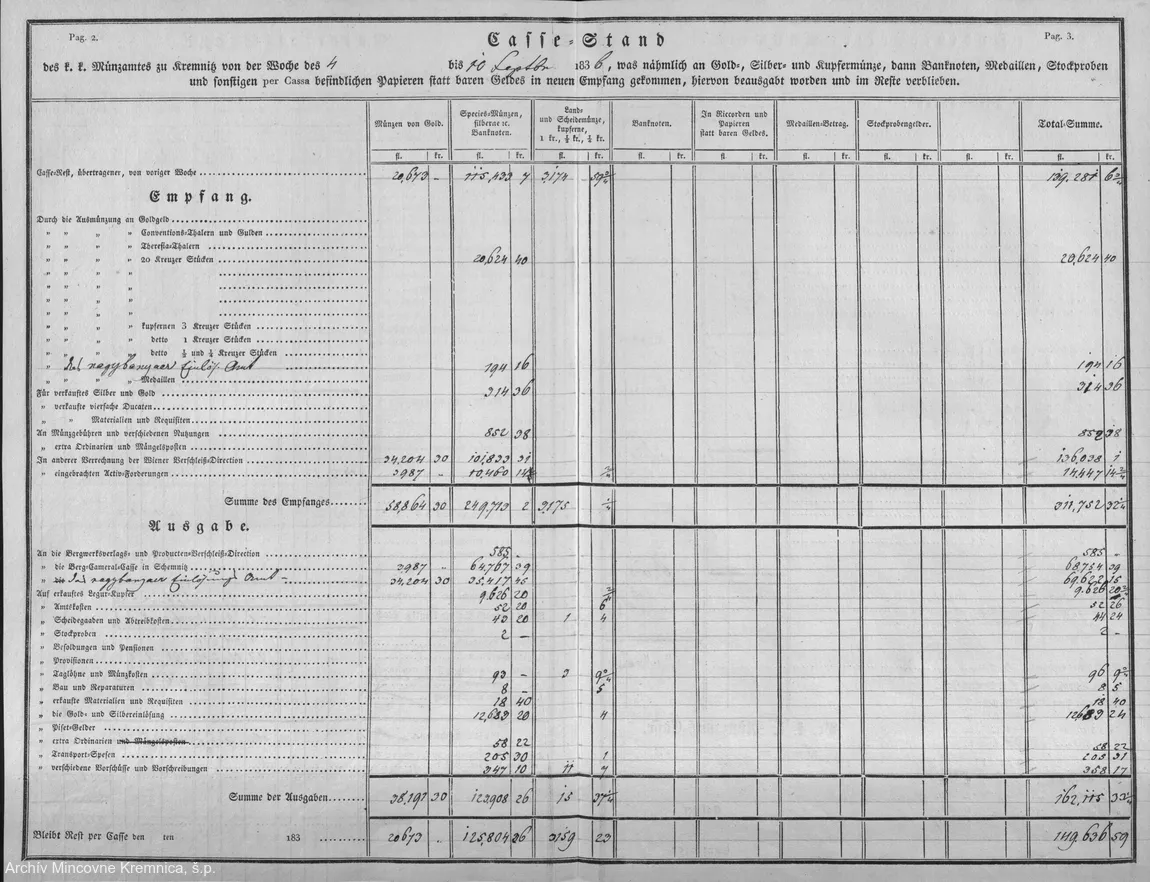 Pag. 2.
Pag. 3.
Casse-Stand
des k. k. Münzamtes zu Kremnitz von der Woche des 4 bis 10 Septbr 1836, was nähmlich an Gold-, Silber- und Kupfermünze, dann Banknoten, Medaillen, Stockproben
und sonstigen per Cassa befindlichen Papieren statt baren Geldes in neuen Empfang gekommen, hiervon beausgabt worden und im Reste verblieben.
Münzen von Gold. Species-Münzen, silberne ic. Banknoten. Land- und Scheidemünze, kupferne, 1 kr., ½ kr., ¼ kr. Banknoten. In Riccorden und Papieren statt baren Geldes. Medaillen-Betrag. Stockprobengelder. Total-Summe.
fl. kr. fl. kr. fl. kr. fl. kr. fl. kr. fl. kr. fl. kr. fl. kr. fl. kr.
Casse-Rest, übertragener, von voriger Woche 20,673 - 115,433 7 3,174 - 59 2/4 139,281 6 3/4
Empfang.
Durch die Ausmünzung an Goldgeld
" " " " Conventions-Thalern und Gulden
" " " " Theresia-Thalern
" " " " 20 Kreuzer Stücken 20,624 40 20,624 40
" " " "
" " " "
" " " "
" " " "
" " " " kupfernen 3 Kreuzer Stücken
" " " detto 1 Kreuzer Stücken
" " " detto ½ und ¼ Kreuzer Stücken
" Das nagybanyaer Einlös. Amt 194 16 194 16
" " " " Medaillen
Für verkauftes Silber und Gold 314 36 314 36
" verkaufte vierfache Ducaten
" " Materialien und Requisiten
An Münzgebühren und verschiedenen Nutzungen 852 38 852 38
" extra Ordinarien und Mängelsposten
In anderer Verrechnung der Wiener Verschleiß-Direction 34,204 30 101,833 31 136,038 1
" eingebrachten Activ-Forderungen 3987 - 10,460 14 14,447 14
Summe des Empfanges 58,864 30 249,713 2 3,175 - 1/4 311,752 32 1/4
Ausgabe.
An die Bergwerksverlags- und Producten-Verschleiß-Direction 585 - 585 -
" die Berg-Cameral-Casse in Schemnitz 3987 - 64,767 39 68,754 39
" in das nagybanyaer Einlösungs Amt - 34,204 30 35,417 45 69,622 15
Auf erkauftes Legur-Kupfer 9,626 20 9,626 20
" Amtskosten 52 20 6 52 26
" Scheidegaaden und Abtreibkosten 43 20 1 4 44 24
" Stockproben 2 - 2 -
" Besoldungen und Pensionen
" Provisionen
" Taglöhne und Münzkosten 93 - 3 9 2/4 96 9 2/4
" Bau und Reparaturen 8 - 5 8 5
" erkaufte Materialien und Requisiten 18 40 18 40
" die Gold- und Silbereinlösung 12,683 20 4 12683 24
" Piset-Gelder
" extra Ordinarien und Mängelsposten 58 22 58 22
" Transport-Spesen 205 30 1 205 31
" verschiedene Vorschüsse und Vorschreibungen 347 10 11 7 358 17
Summe der Ausgaben 38,191 30 123,908 26 15 37 1/4 162,115 33 1/4
Bleibt Rest per Casse den ten 183 20673 - 125,804 36 3159 23 149,636 59
Archív Mincovne Kremnica, š.p.